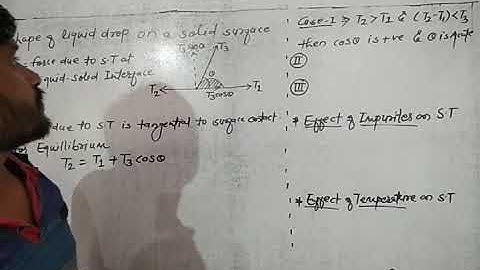 Shape of liquid drop on a solid surface
force due to S.T at
liquid-solid Interface
T3 sinθ
T3
θ
T2
T1
T3cosθ
due to S.T is tangential to surface contact
Equillibrium
T2 = T1 + T3 cosθ
Case-I ⇒ T2 > T1 & (T2-T1) < T3
then cosθ is +ve & θ is acute
II
III
* Effect of Impurities on S T
* Effect of Temperature on S T